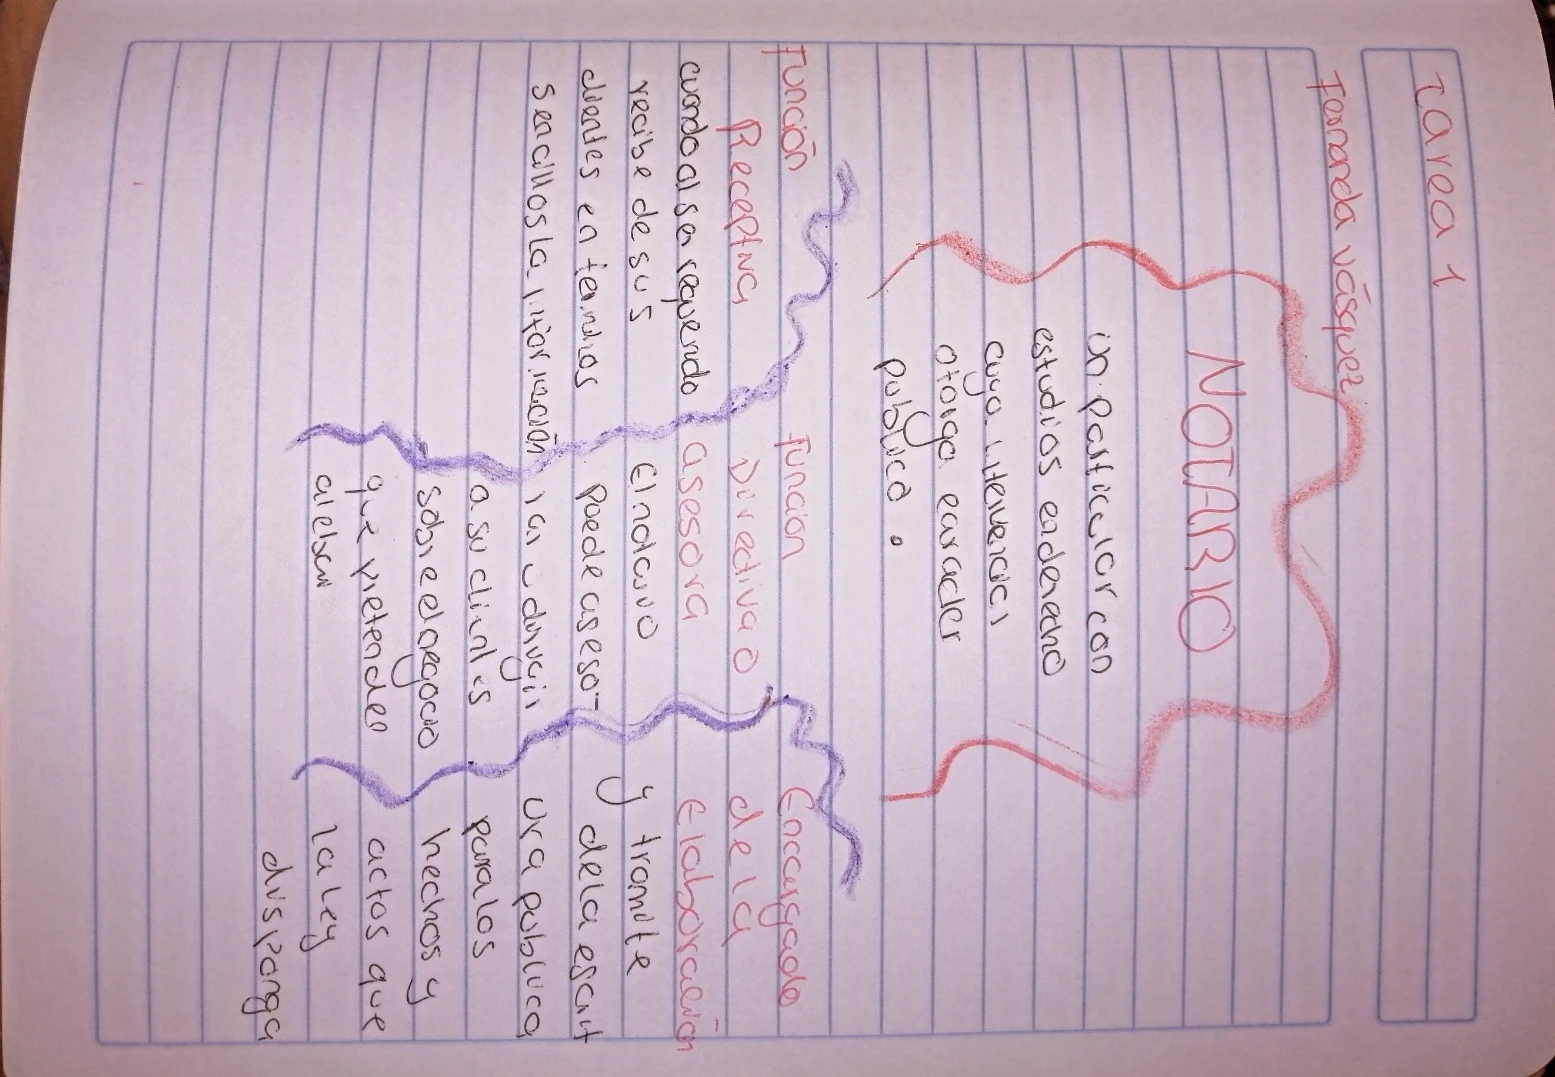 Tarea 1
Fernanda vásquez
NOTARIO
un particular con
estudios en derecho
cuya intervencion
otorga caracter
publico.
Función
Receptiva
cuando al ser requerido
recibe de sus
clientes en terminos
sencillos la información
Funcion
Directiva o
asesora
El notario
puede aseso-
rar o dirigir
a su clientes
sobre el negocio
que pretenden
alebar
Encargado
de la
Elaboración
y tramite
de la escrit
ura publica
para los
hechos y
actos que
la ley
disponga